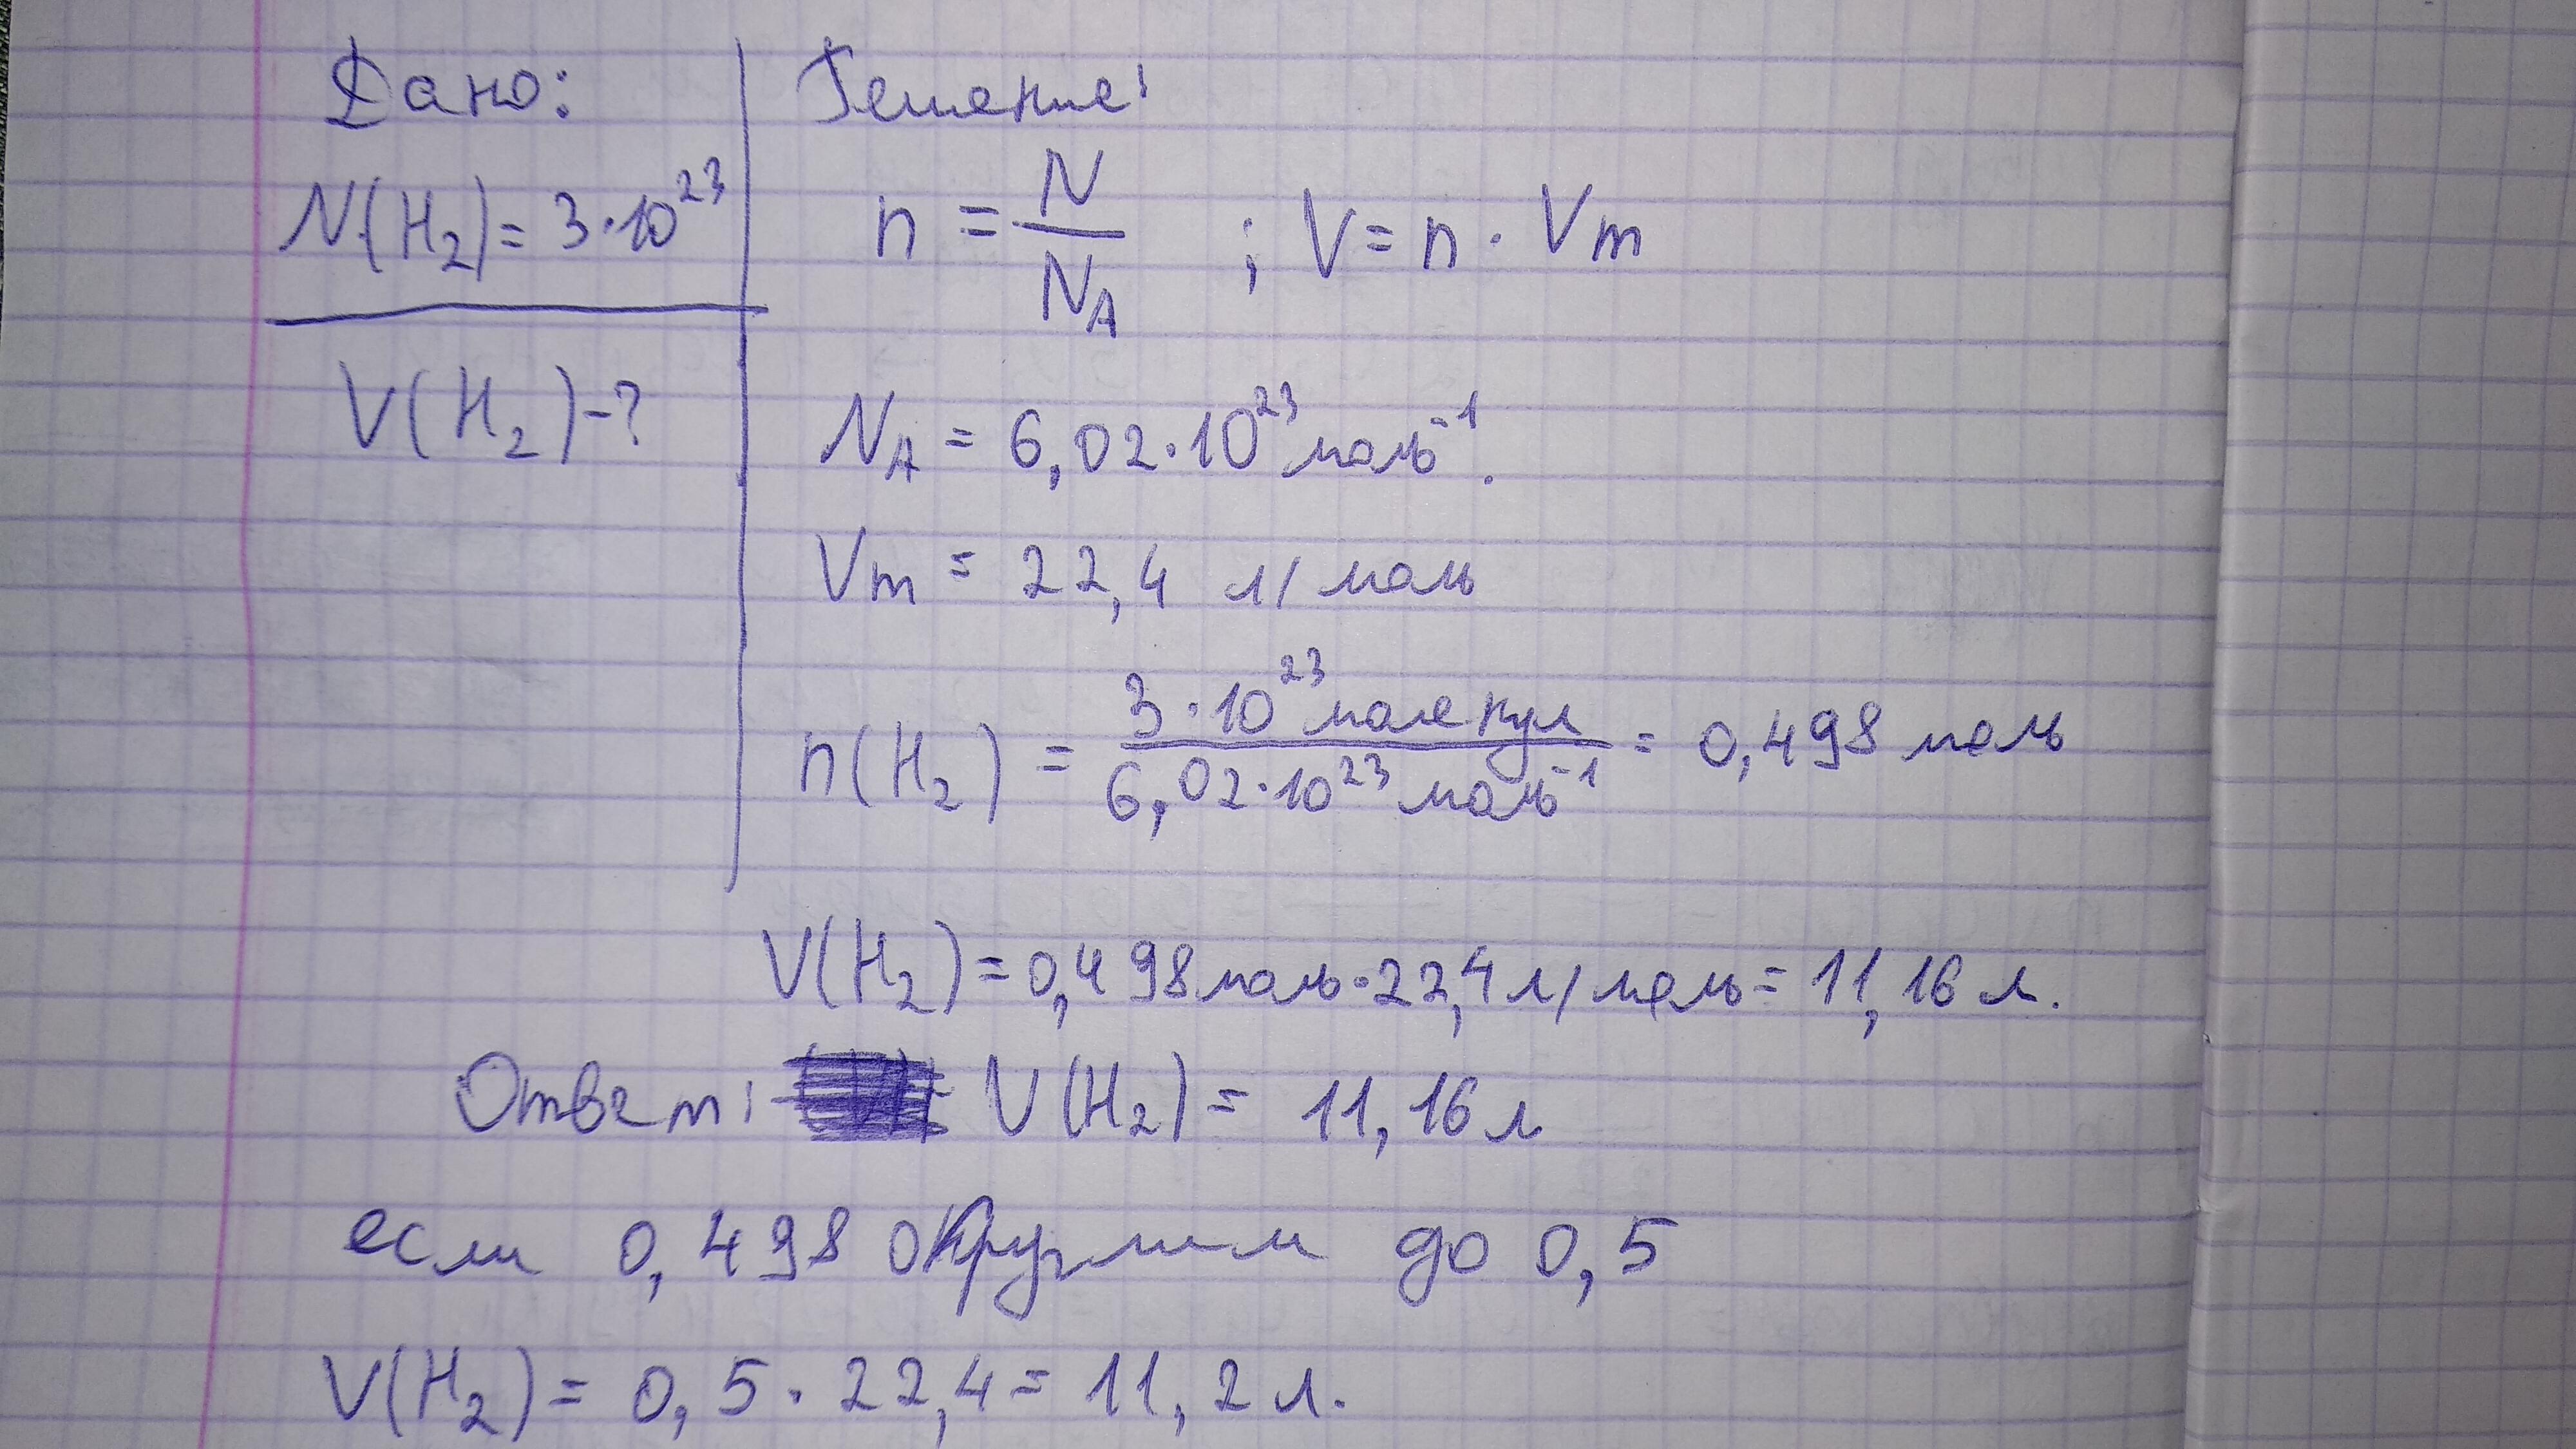 Дано:
Решение:
N(H₂) = 3·10²³
n = N/N_A ; V = n · Vm
V(H₂) - ?
N_A = 6,02·10²³ моль⁻¹.
Vm = 22,4 л/моль
n(H₂) = 3·10²³ молекул / 6,02·10²³ моль⁻¹ = 0,498 моль
V(H₂) = 0,498 моль·22,4 л/моль = 11,16 л.
Ответ: V(H₂) = 11,16 л
если 0,498 округлим до 0,5
V(H₂) = 0,5 · 22,4 = 11,2 л.